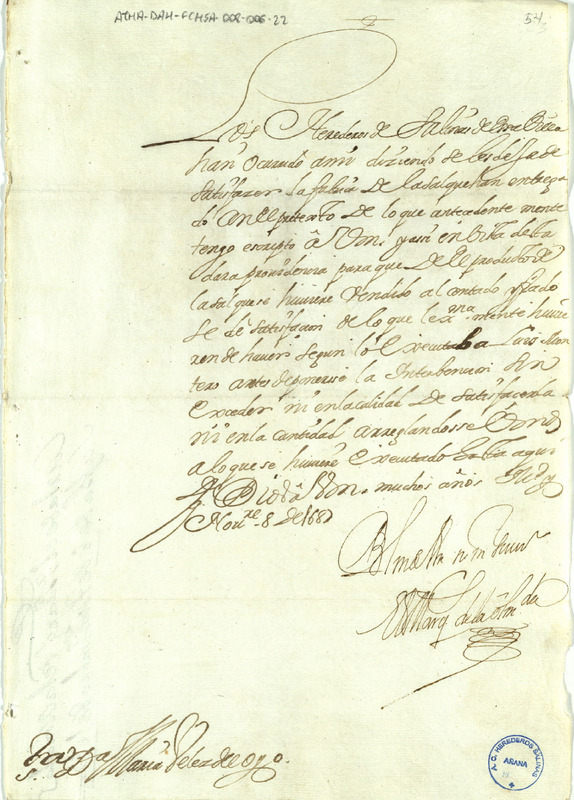 ATHA-DAH-FCHSA-008-006-22
54
Los Herederos de Salinas de essa Villa
han ocurrido a mi diziendo se les dexa de
satisfazer la fabrica De la sal que han entrega
do con el pretexto De lo que antecedente mente
tengo escripto â Vm. y assi en vista de esta
dara providencia para que De el producto de
la sal que se huviere Vendido al contado
se dê satisfacion de lo que mente huvie
ren de haver segun lo executaba Luis Mon
tero antes de ponerse la Intervencion sin
exceder ni en la calidad De satisfacerla
ni en la cantidad arreglandosse Vm.
a lo que se huviere executado hasta aqui
Dios â Vm. muchos años
Nov.re 8 De 168
Blm de Vm su m serv
El Marq de la
S. D. Maria Velez de Oyo.
A.G. HEREDEROS SALINAS
ARANA